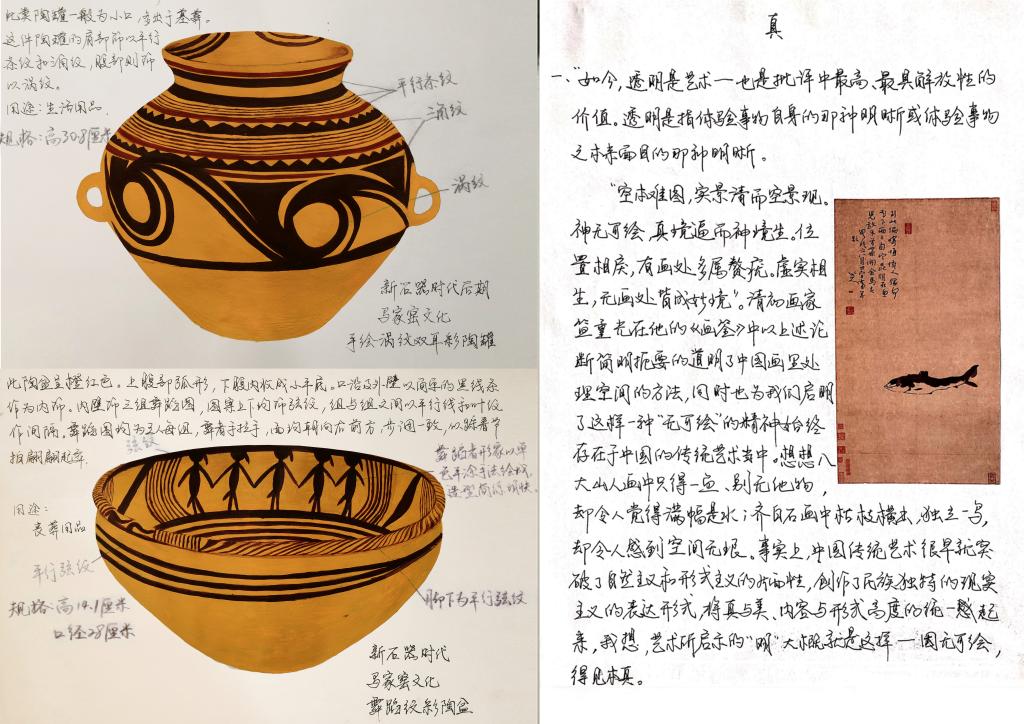 此类陶罐一般为小口,多出于墓葬。
这件陶罐的肩部饰以平行
条纹和三角纹,腹部则饰
以涡纹。
用途:生活用品
规格:高30.8厘米
平行条纹
三角纹
涡纹
新石器时代后期
马家窑文化
手绘涡纹双耳彩陶罐
此陶盆呈橙红色。上腹部弧形,下腹内收成小平底。口沿及外壁以简单的黑线条
作为内饰。内壁饰三组舞蹈图,图案上下均饰弦纹,组与组之间以平行线和叶纹
作间隔。舞蹈图均为五人每组,舞者手拉手,面均朝向右前方,步调一致,似踩着节
拍翩翩起舞。
弦纹
舞蹈者形象以单
色平涂手法绘成,
造型简练明快。
用途:
丧葬用品
平行弦纹
规格:高14.1厘米
口径28厘米
脚下为平行弦纹
新石器时代
马家窑文化
舞蹈纹彩陶盆
真
一、“如今,透明是艺术—也是批评中最高、最具解放性的
价值。透明是指体验事物自身的那种明晰或体验事物
之本来面目的那种明晰。
“空本难图,实景清而空景现。
神无可绘,真境逼而神境生。位
置相戾,有画处多属赘疣。虚实相
生,无画处皆成妙境”。清初画家
笪重光在他的《画筌》中以上述论
断简明扼要的道明了中国画里处
理空间的方法,同时也为我们启明
了这样一种“无可绘”的精神始终
存在于中国的传统艺术当中。想想八
大山人画中只得一鱼、别无他物,
却令人觉得满幅是水;齐白石画中枯枝横出,独立一鸟,
却令人感到空间无垠。事实上,中国传统艺术很早就突
破了自然主义和形式主义的片面性,创作了民族独特的现实
主义的表达形式,将真与美、内容与形式高度的统一感起
来,我想,艺术所启示的“明”大概就是这样一图无可绘,
得见本真。